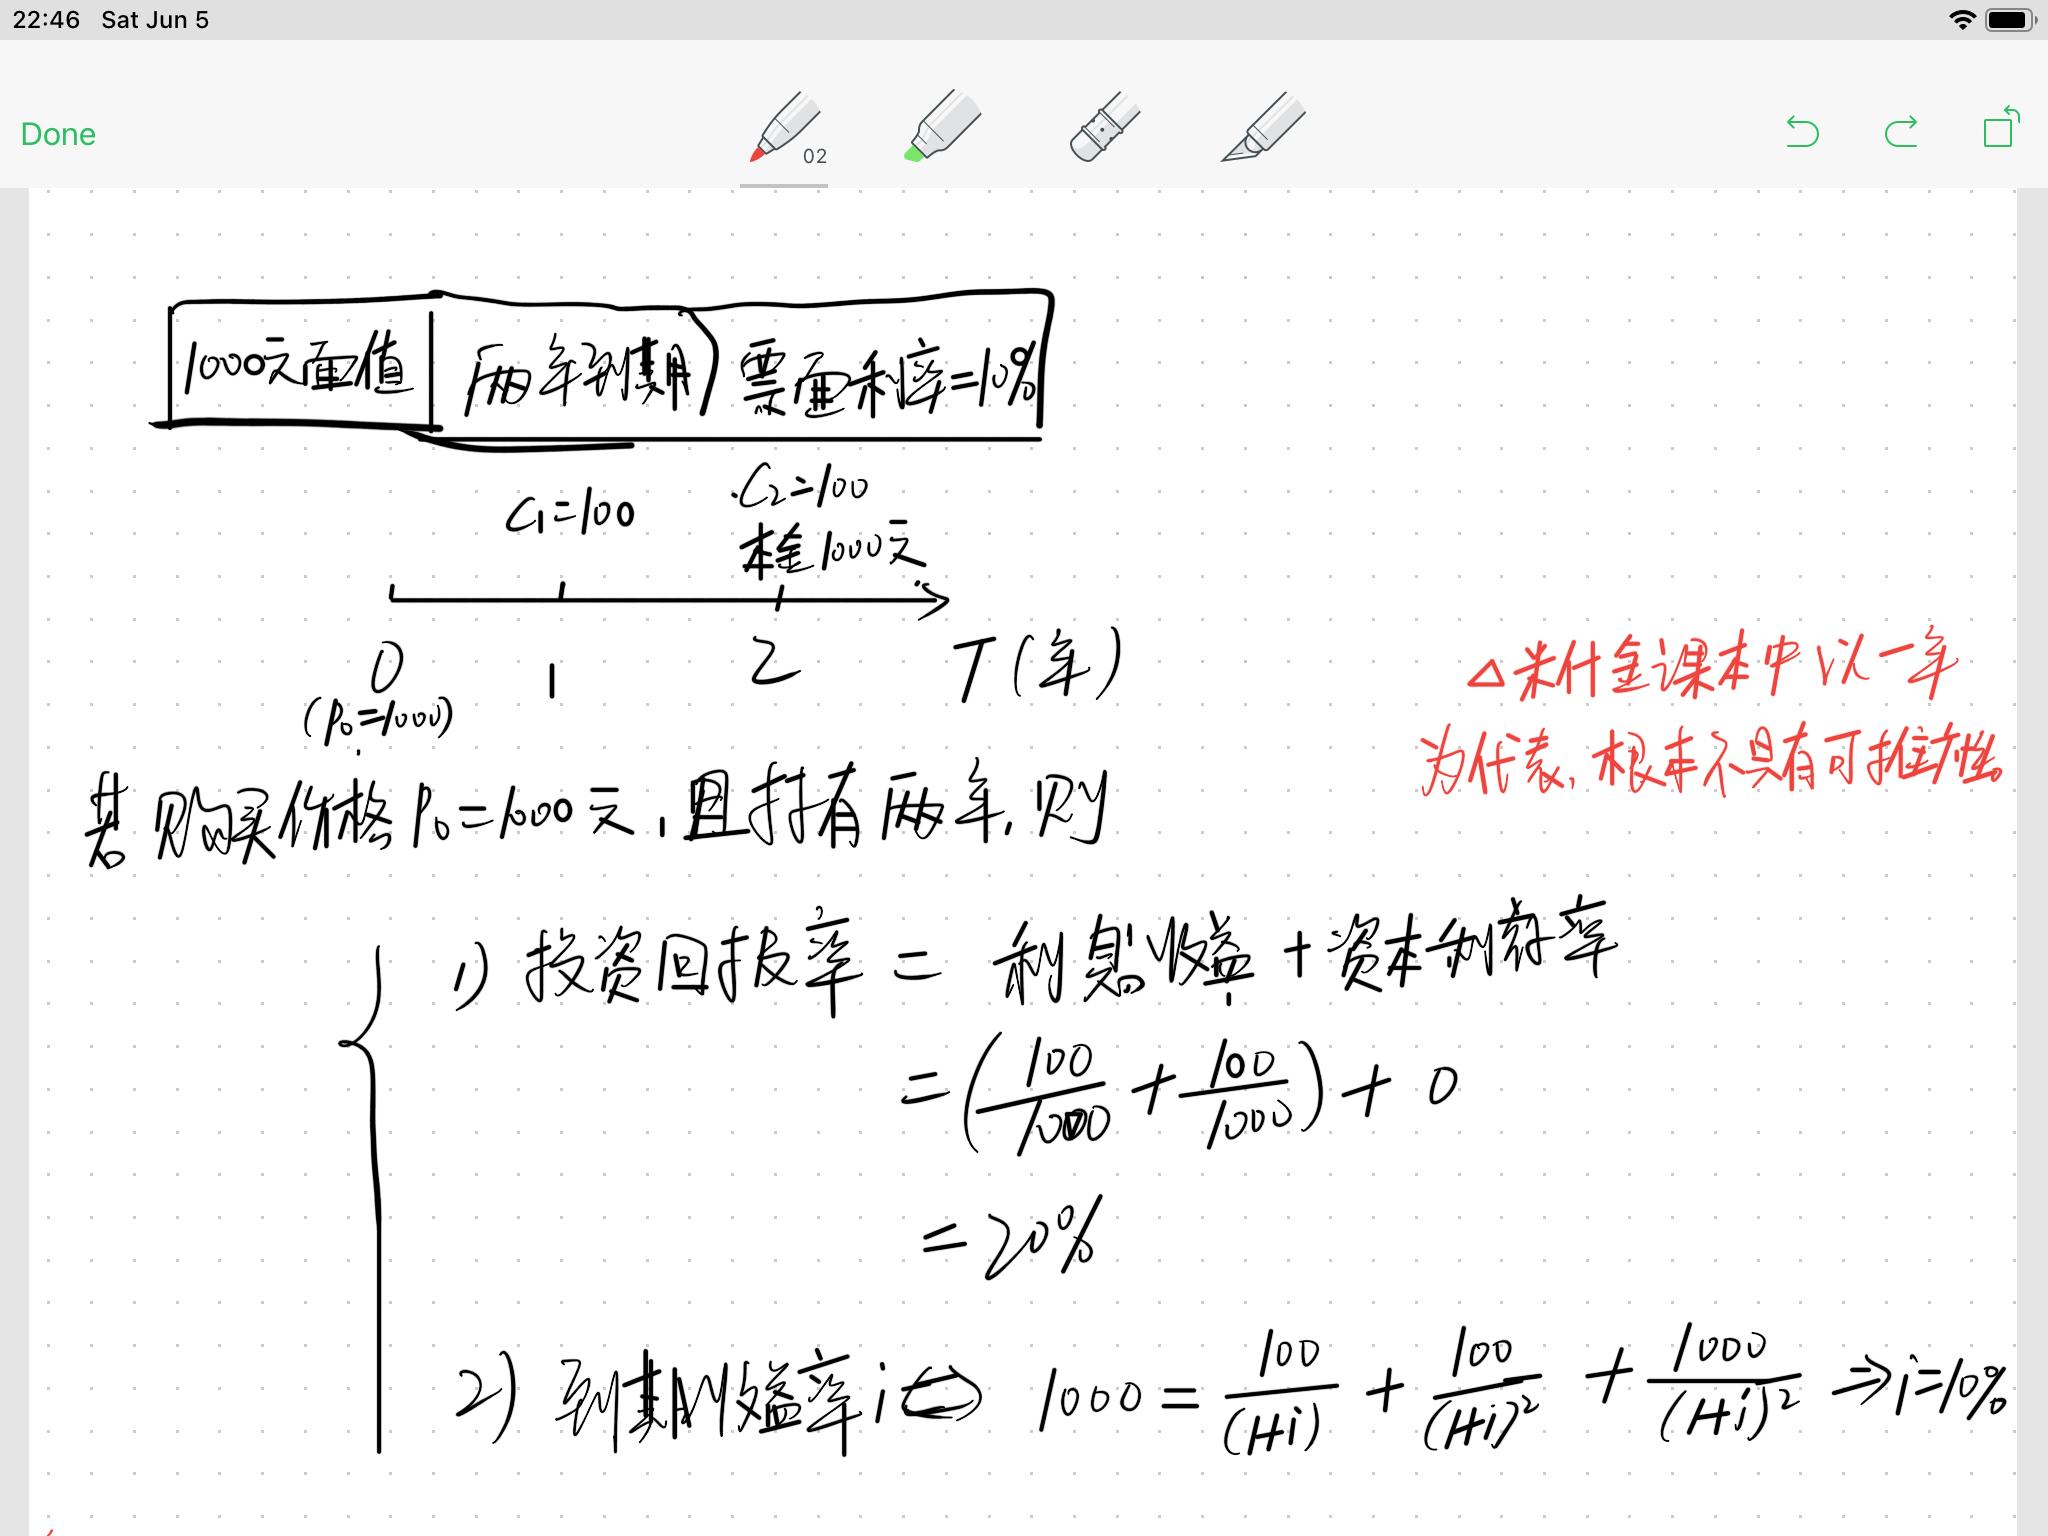 22:46 Sat Jun 5
Done
02
1000元面值 两年到期 票面利率=10%
C₁=100
C₂=100
本金1000元
0 1 2 T(年)
(P₀=1000)
△米什金课本中以一年
为代表,根本不具有可推广性。
若购买价格P₀=1000元,且持有两年,则
1) 投资回报率 = 利息收益 + 资本利得率
= (100/1000 + 100/1000) + 0
= 20%
2) 到期收益率i⇔ 1000 = 100/(1+i) + 100/(1+i)² + 1000/(1+i)² ⇒ i=10%